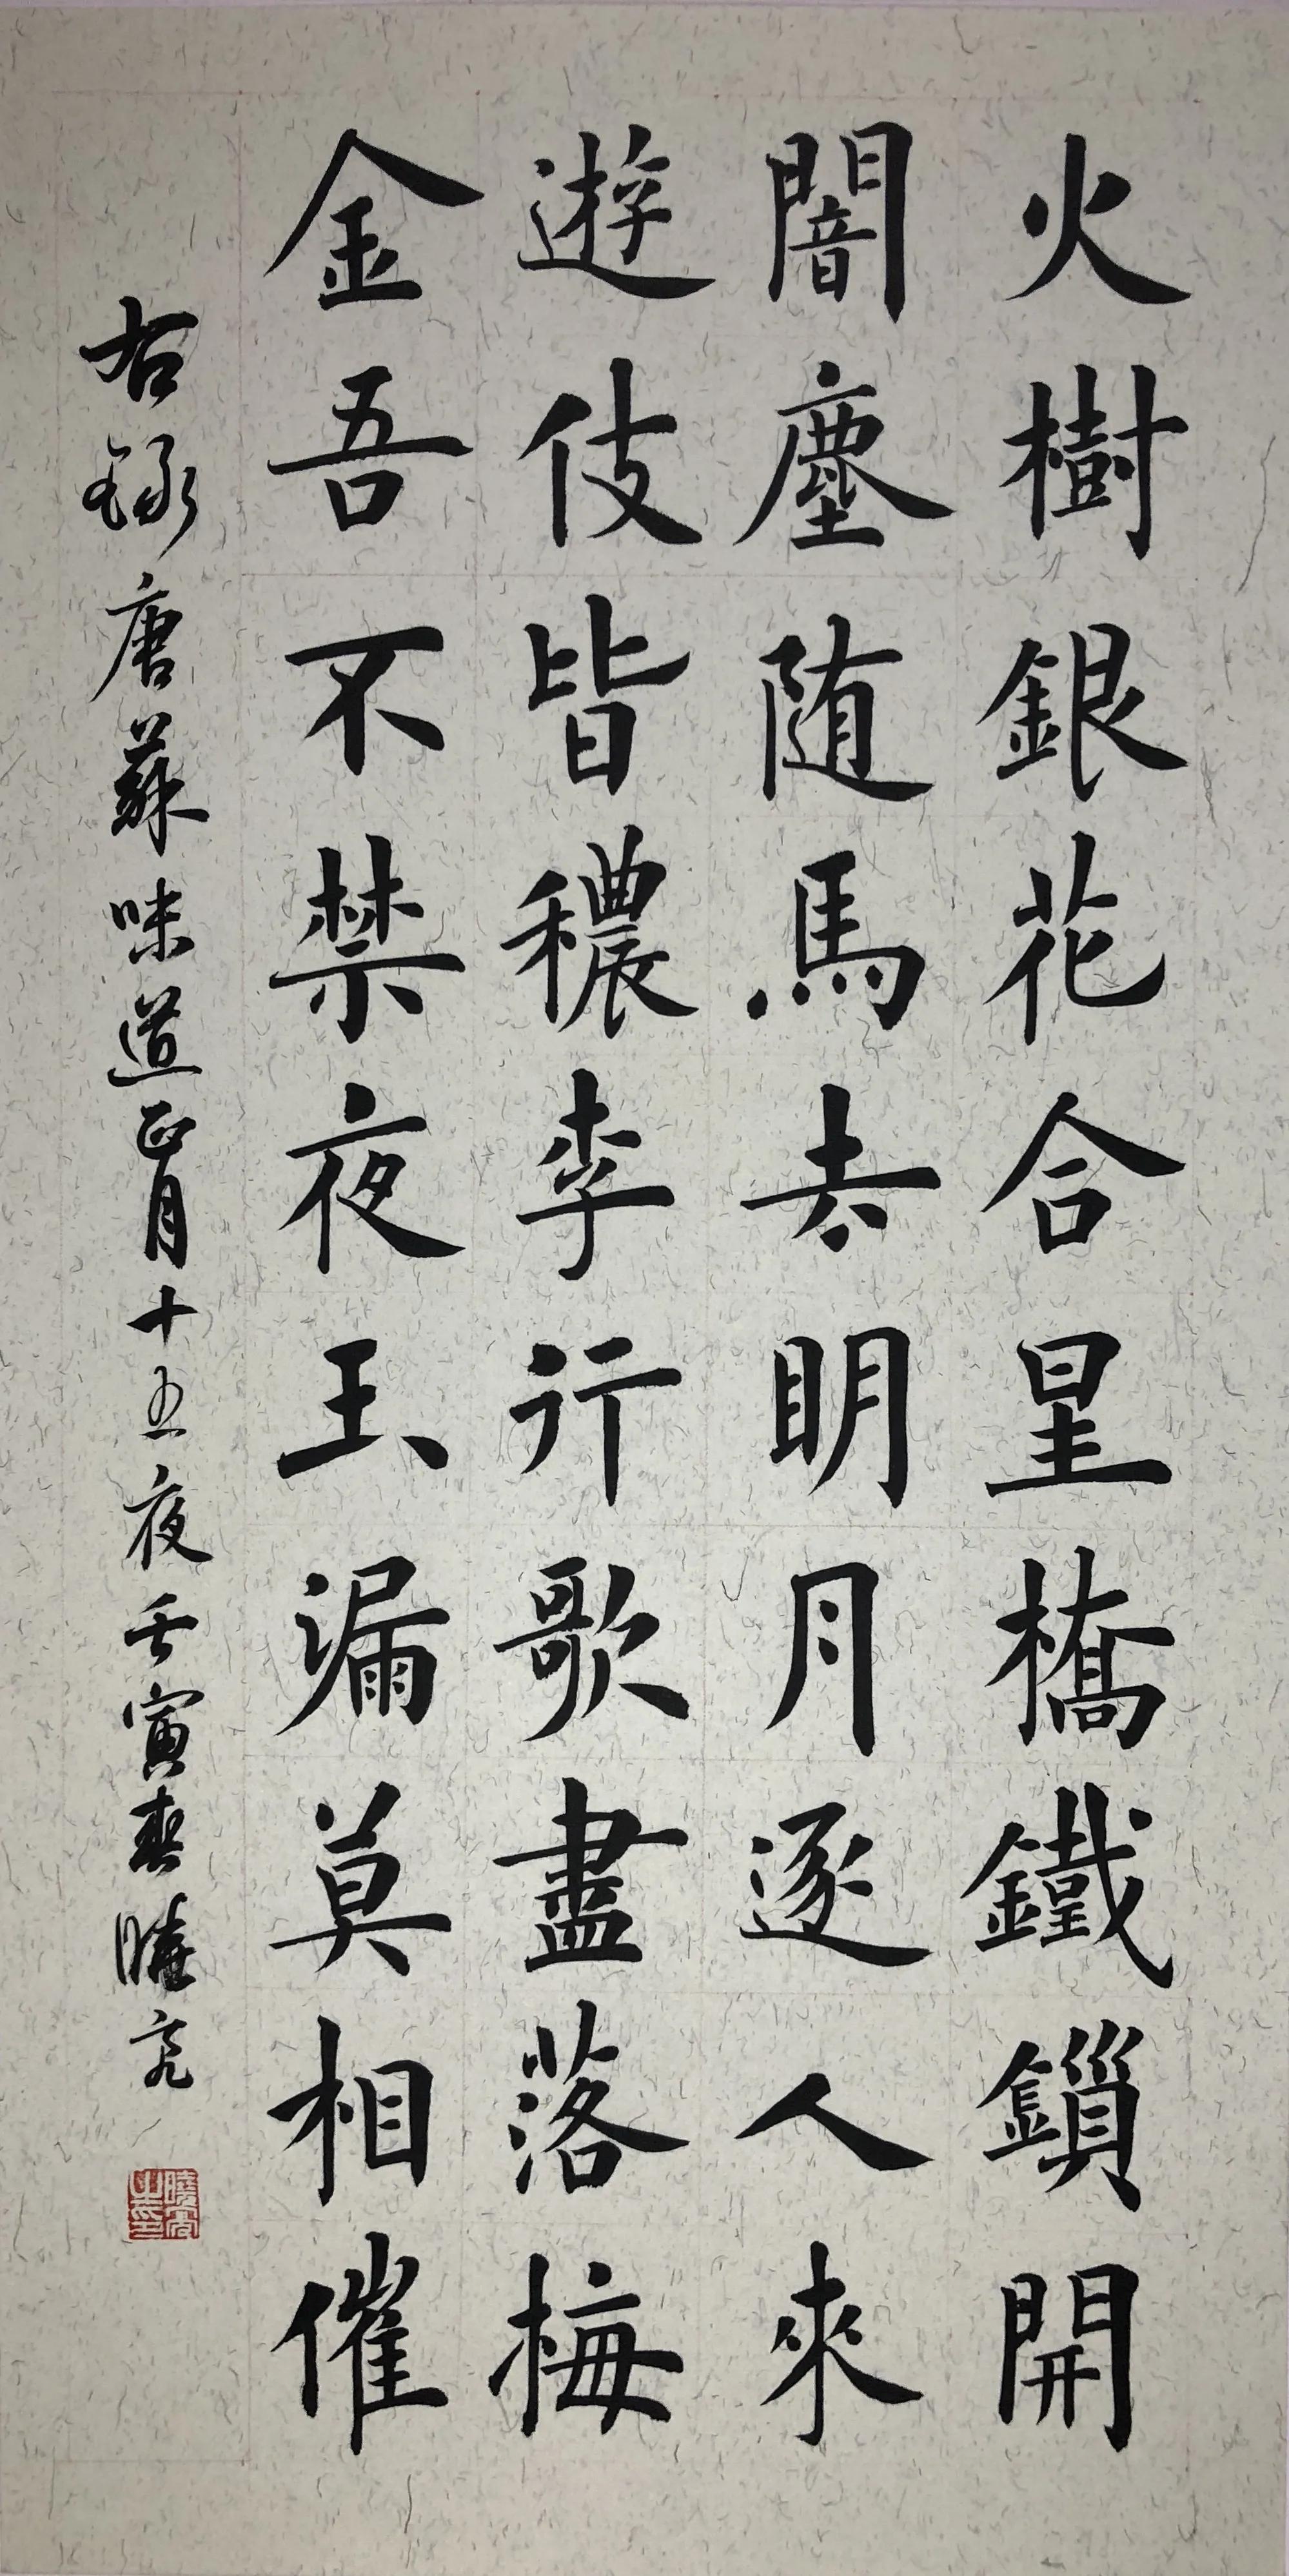 火樹銀花合星橋鐵鎖開
闇塵随馬去明月逐人來
遊伎皆穠李行歌盡落梅
金吾不禁夜玉漏莫相催
右錄唐蘇味道正月十五夜壬寅春曉亮